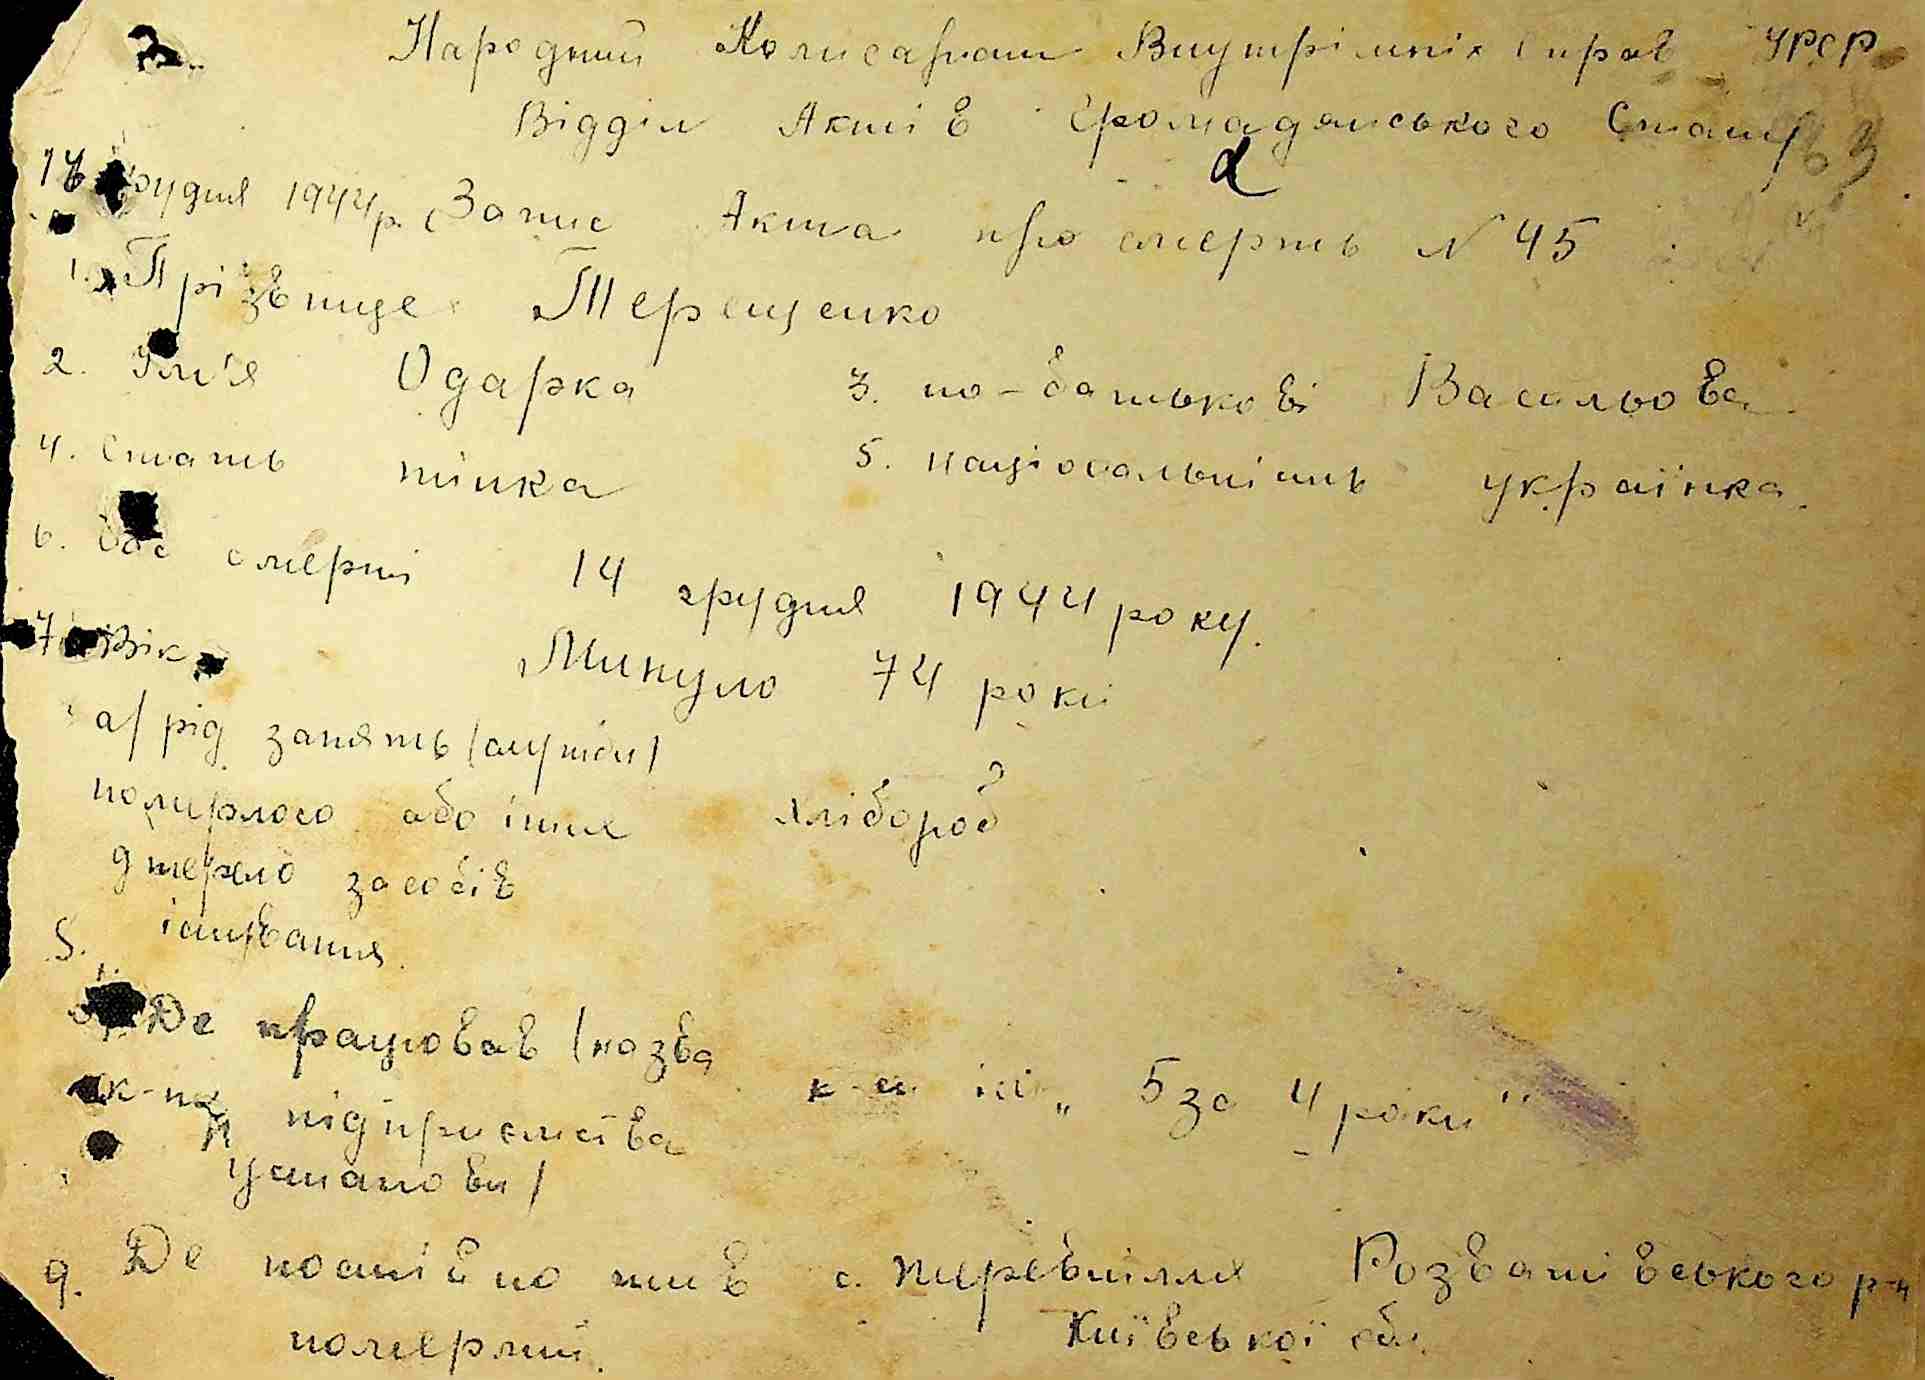 3.
Народний Комисаріат Внутрішніх Справ УРСР
Відділ Актів Громадянського Стану
грудня 1944 р. Запис Акта про смерть N 45
1. Прізвище Терещенко
2. Ім'я Одарка 3. по-батькові Васильова
4. Стать жінка 5. національність українка.
6. Час смерті 14 грудня 1944 року.
7. Вік Минуло 74 роки
а/ рід занять /служби/
померлого або інше хлібороб
джерело засобів
існування.
Де працював /назва
к-п підприємства "5 за 4 роки"
установи/
9. Де постійно жив с. Жеревпілля Розважівського р-н
померлий. Київської обл.